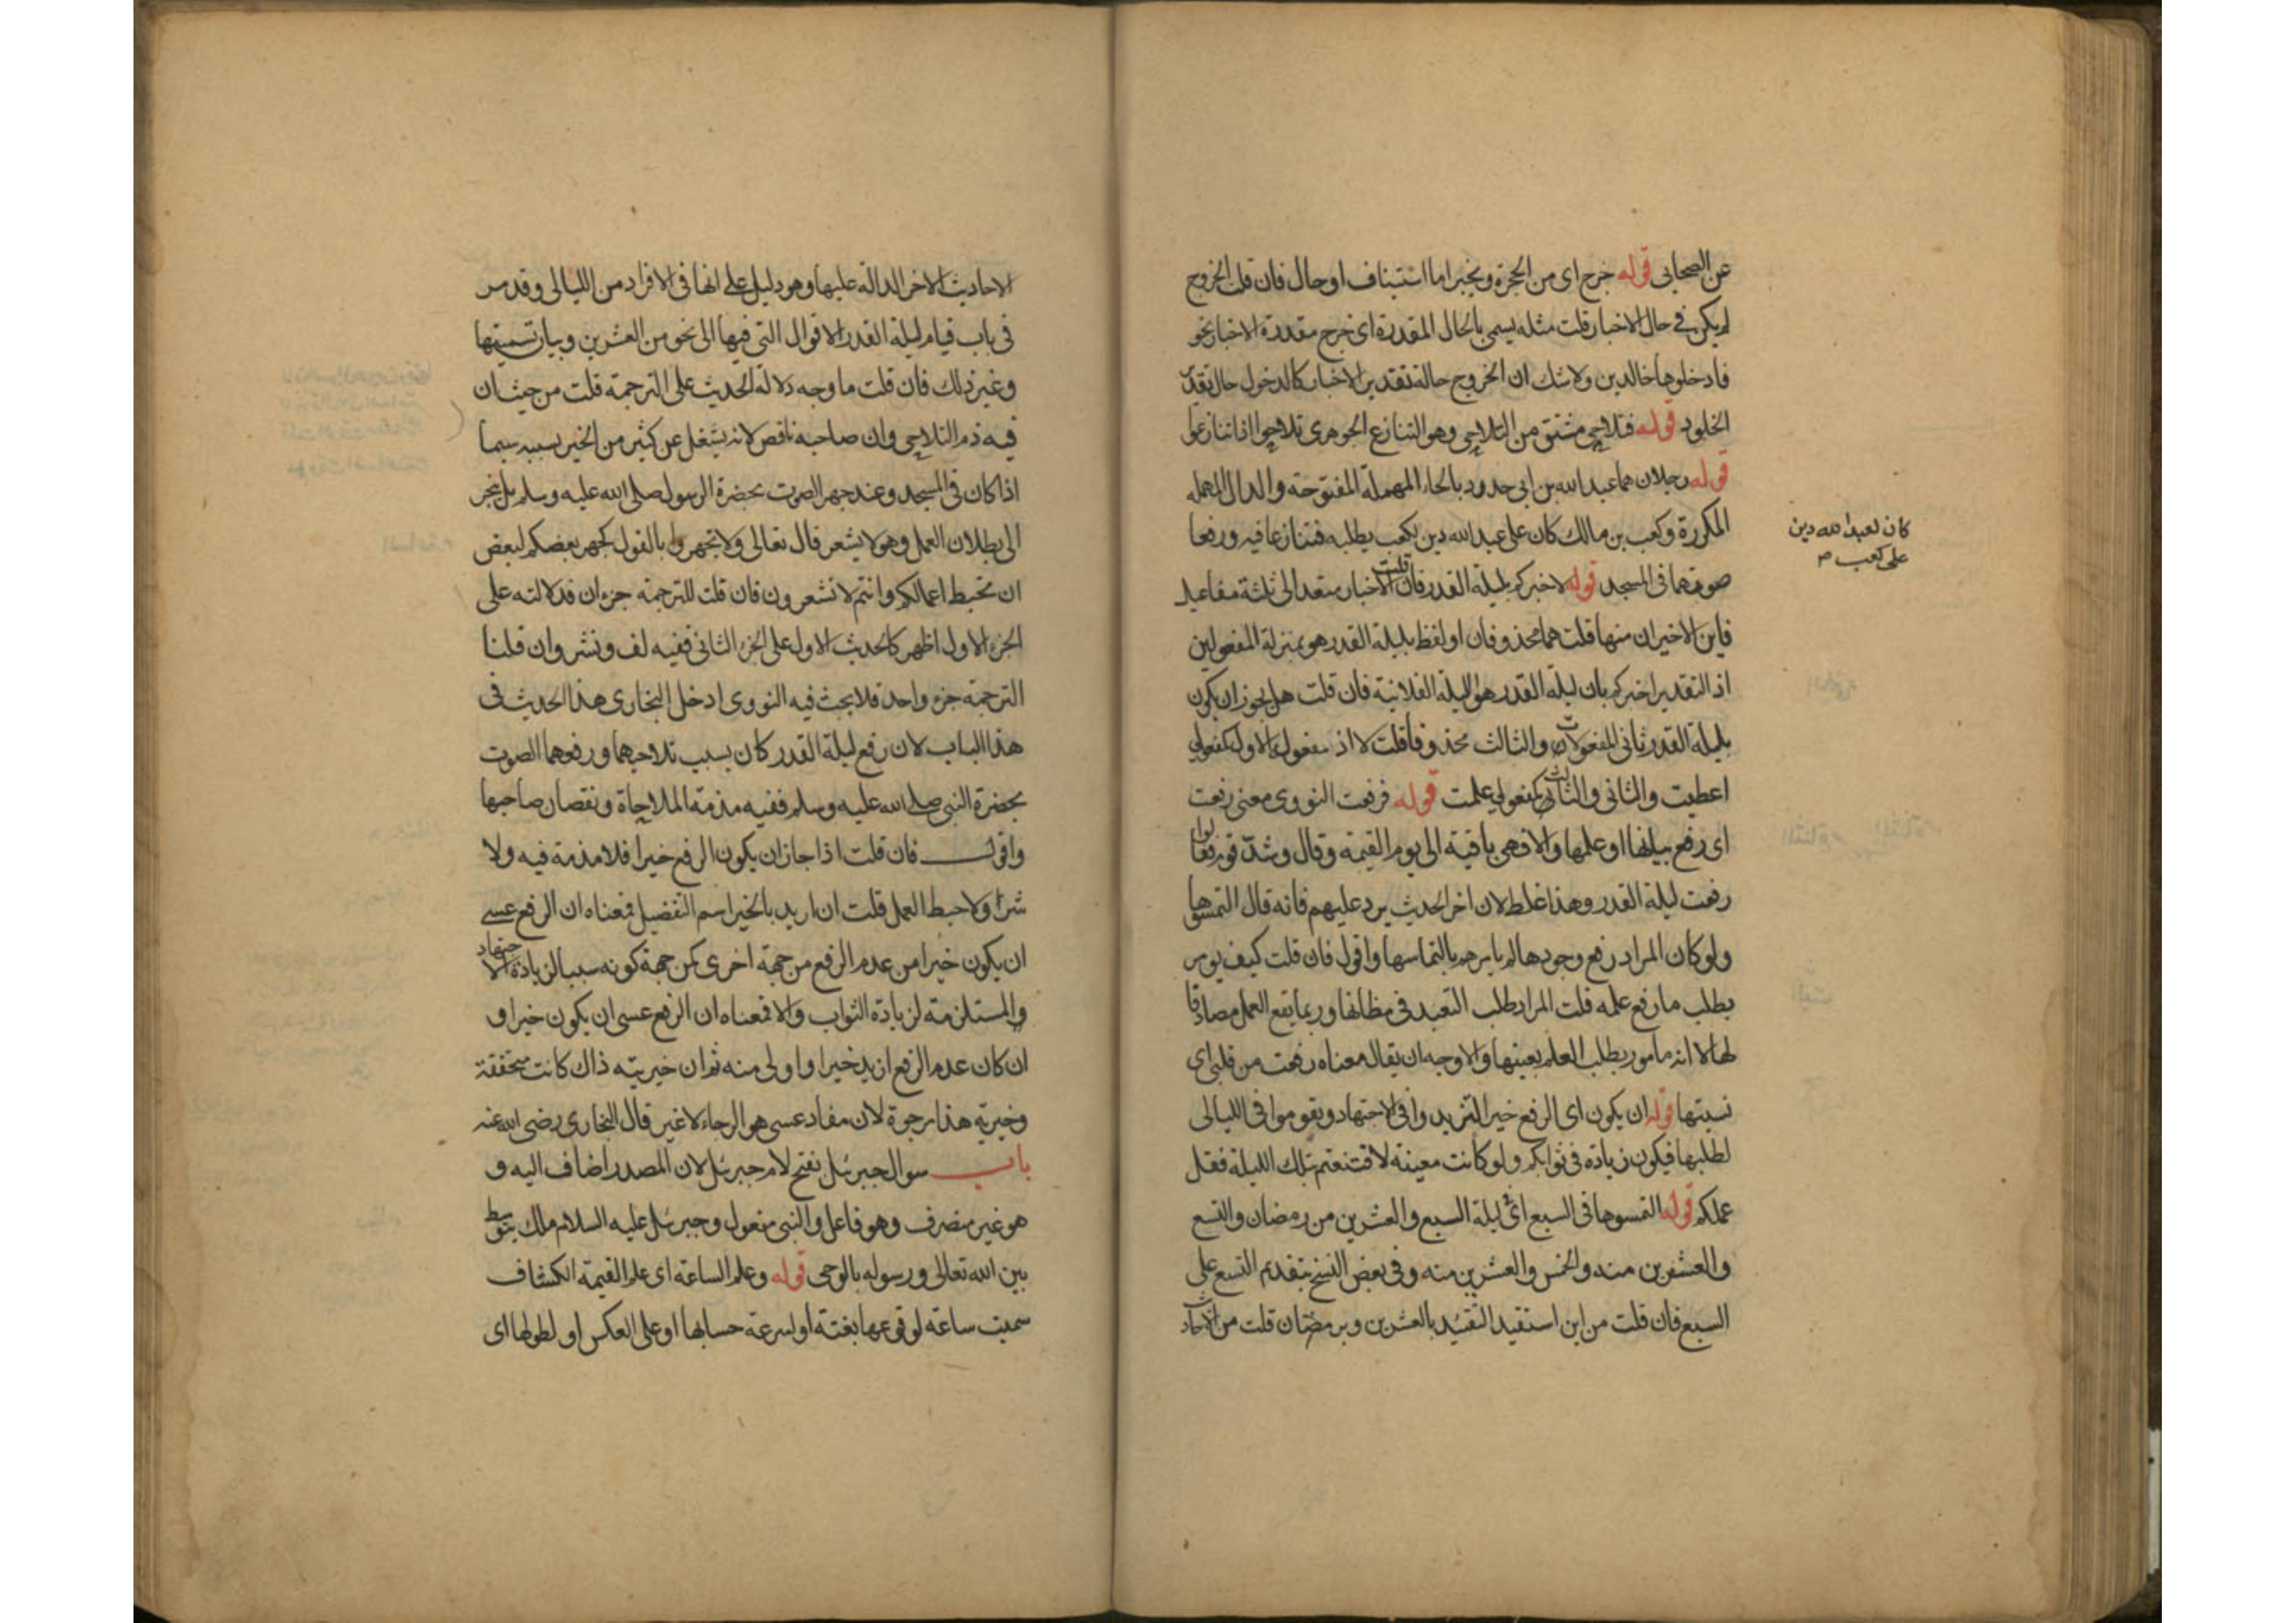 عن الصحابي قوله خرج اى من الحجرة ويخبر اما استيناف او حال فان قلت الخروج
لم يكن في حال الاخبار قلت مثله يسمى بالحال المقدرة اى خرج مقدرة الاخبار نحو
فادخلوها خالدين ولا شك ان الخروج حالة تقدير الاخبار كالدخول حال تقدير
الخلود قوله فتلاحى مشتق من التلاحى وهو التنازع الجوهرى تلاحوا اذا تنازعوا
قوله رجلان هما عبد الله بن ابى حدرد بالحاء المهملة المفتوحة والدال المهمله
المكررة وكعب بن مالك كان على عبد الله دين لكعب يطلبه فتنازعا فيه ورفعا
كان لعبد الله دين
على كعب م
صوتهما فى المسجد قوله لاخبركم بليلة القدر فان قلت الاخبار متعد الى ثلثة مفاعيل
فاين الاخيران منها قلت هما محذوفان او لفظ بليلة القدر هو بمنزلة المفعولين
اذ التقدير اخبركم بان ليلة القدر هو الليلة الفلانية فان قلت هل يجوز ان يكون
بليلة القدر ثانى المفعولات والثالث محذوفا قلت لا اذ مفعوله الاول كمفعولى
اعطيت والثانى والثالث كمفعولى علمت قوله فرفعت النووى معنى رفعت
اى رفع بيانها او علمها والا فهى باقية الى يوم القيمة وقال وشذ قوم فقالوا
رفعت ليلة القدر وهذا غلط لان اخر الحديث يرد عليهم فانه قال التمسوها
ولو كان المراد رفع وجودها لم يامرهم بالتماسها واقول فان قلت كيف يومر
بطلب ما رفع علمه قلت المراد طلب التعبد فى مظانها وربما يقع العمل مصادفا
لها لا انه مامور بطلب العلم بعينها والاوجه ان يقال معناه رفعت من قلبى اى
نسيتها قوله ان يكون اى الرفع خيرا لتزيدوا فى الاجتهاد وتقوموا فى الليالى
لطلبها فيكون زيادة فى ثوابكم ولو كانت معينة لاقتنعتم بتلك الليلة فقل
عملكم قوله التمسوها فى السبع اى فى ليلة السبع والعشرين من رمضان والتسع
والعشرين منه والخمس والعشرين منه وفى بعض النسخ بتقديم التسع على
السبع فان قلت من اين استفيد التقييد بالعشرين وبرمضان قلت من الاحاديث
الاحاديث الاخر الدالة عليها وهو دليل على انها فى الافراد من الليالى وقد مر
فى باب قيام ليلة القدر الاقوال التى فيها الى نحو من العشرين وبيان تسميتها
وغير ذلك فان قلت ما وجه دلالة الحديث على الترجمة قلت من حيث ان
فيه ذم التلاحى وان صاحبه ناقص لانه يشغل عن كثير من الخير بسببه سيما
اذا كان فى المسجد وعند جهر الصوت بحضرة الرسول صلى الله عليه وسلم بل ينجر
الى بطلان العمل وهو لا يشعر قال تعالى ولا تجهروا بالقول كجهر بعضكم لبعض
ان تحبط اعمالكم وانتم لا تشعرون فان قلت للترجمة جزءان فدلالته على
الجزء الاول اظهر كالحديث الاول على الجزء الثانى ففيه لف ونشر وان قلنا
الترجمة جزء واحد فلا بحث فيه النووى ادخل البخارى هذا الحديث فى
هذا الباب لان رفع ليلة القدر كان بسبب تلاحيهما ورفعهما الصوت
بحضرة النبى صلى الله عليه وسلم ففيه مذمة الملاحاة ونقصان صاحبها
واقول فان قلت اذا جاز ان يكون الرفع خيرا فلا مذمة فيه ولا
شرا ولا حبط العمل قلت ان اريد بالخير اسم التفضيل فمعناه ان الرفع عسى
ان يكون خيرا من عدم الرفع من جهة اخرى كمن جهة كونه سببا لزيادة الاجتهاد
والمستلزمة لزيادة الثواب والا فمعناه ان الرفع عسى ان يكون خيرا و
ان كان عدم الرفع ازيد خيرا واولى منه ثم ان خيريته ذاك كانت متحققة
وخيرية هذا مرجوة لان مفاد عسى هو الرجاء لا غير قال البخارى رضى الله عنه
باب سوال جبرئل بفتح لام جبرئل لان المصدر اضاف اليه و
هو غير منصرف وهو فاعل والنبى مفعول وجبرئل عليه السلام ملك يتوسط
بين الله تعالى ورسوله بالوحى قوله وعلم الساعة اى علم القيمة الكشاف
سميت ساعة لوقوعها بغتة او لسرعة حسابها او على العكس او لطولها اى